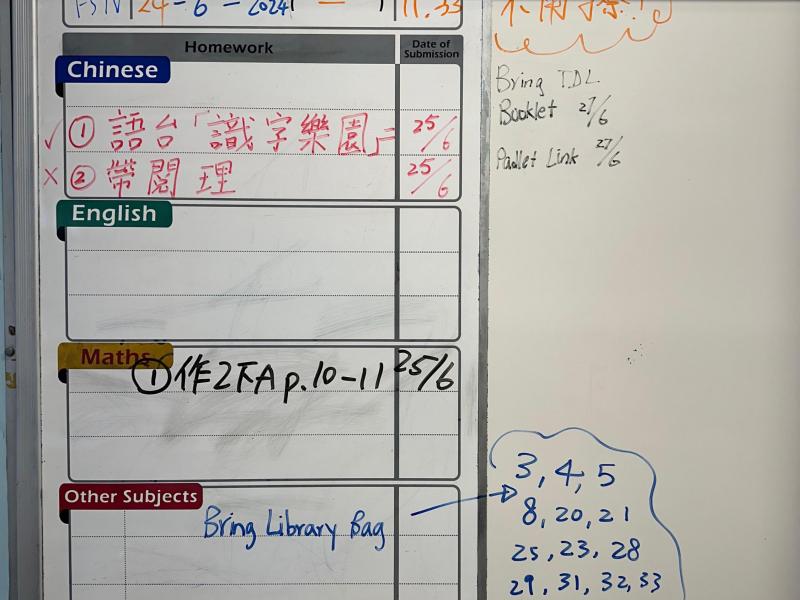 24-6-2024
Homework Date of Submission
Chinese
✓ ① 語台「識字樂園」= 25/6
× ② 帶閱理 25/6
English
Maths
① 作2下A p.10-11 25/6
Other Subjects
Bring Library Bag
Bring TDL
Booklet 27/6
Padlet Link 27/6
3, 4, 5
8, 20, 21
25, 23, 28
29, 31, 32, 33